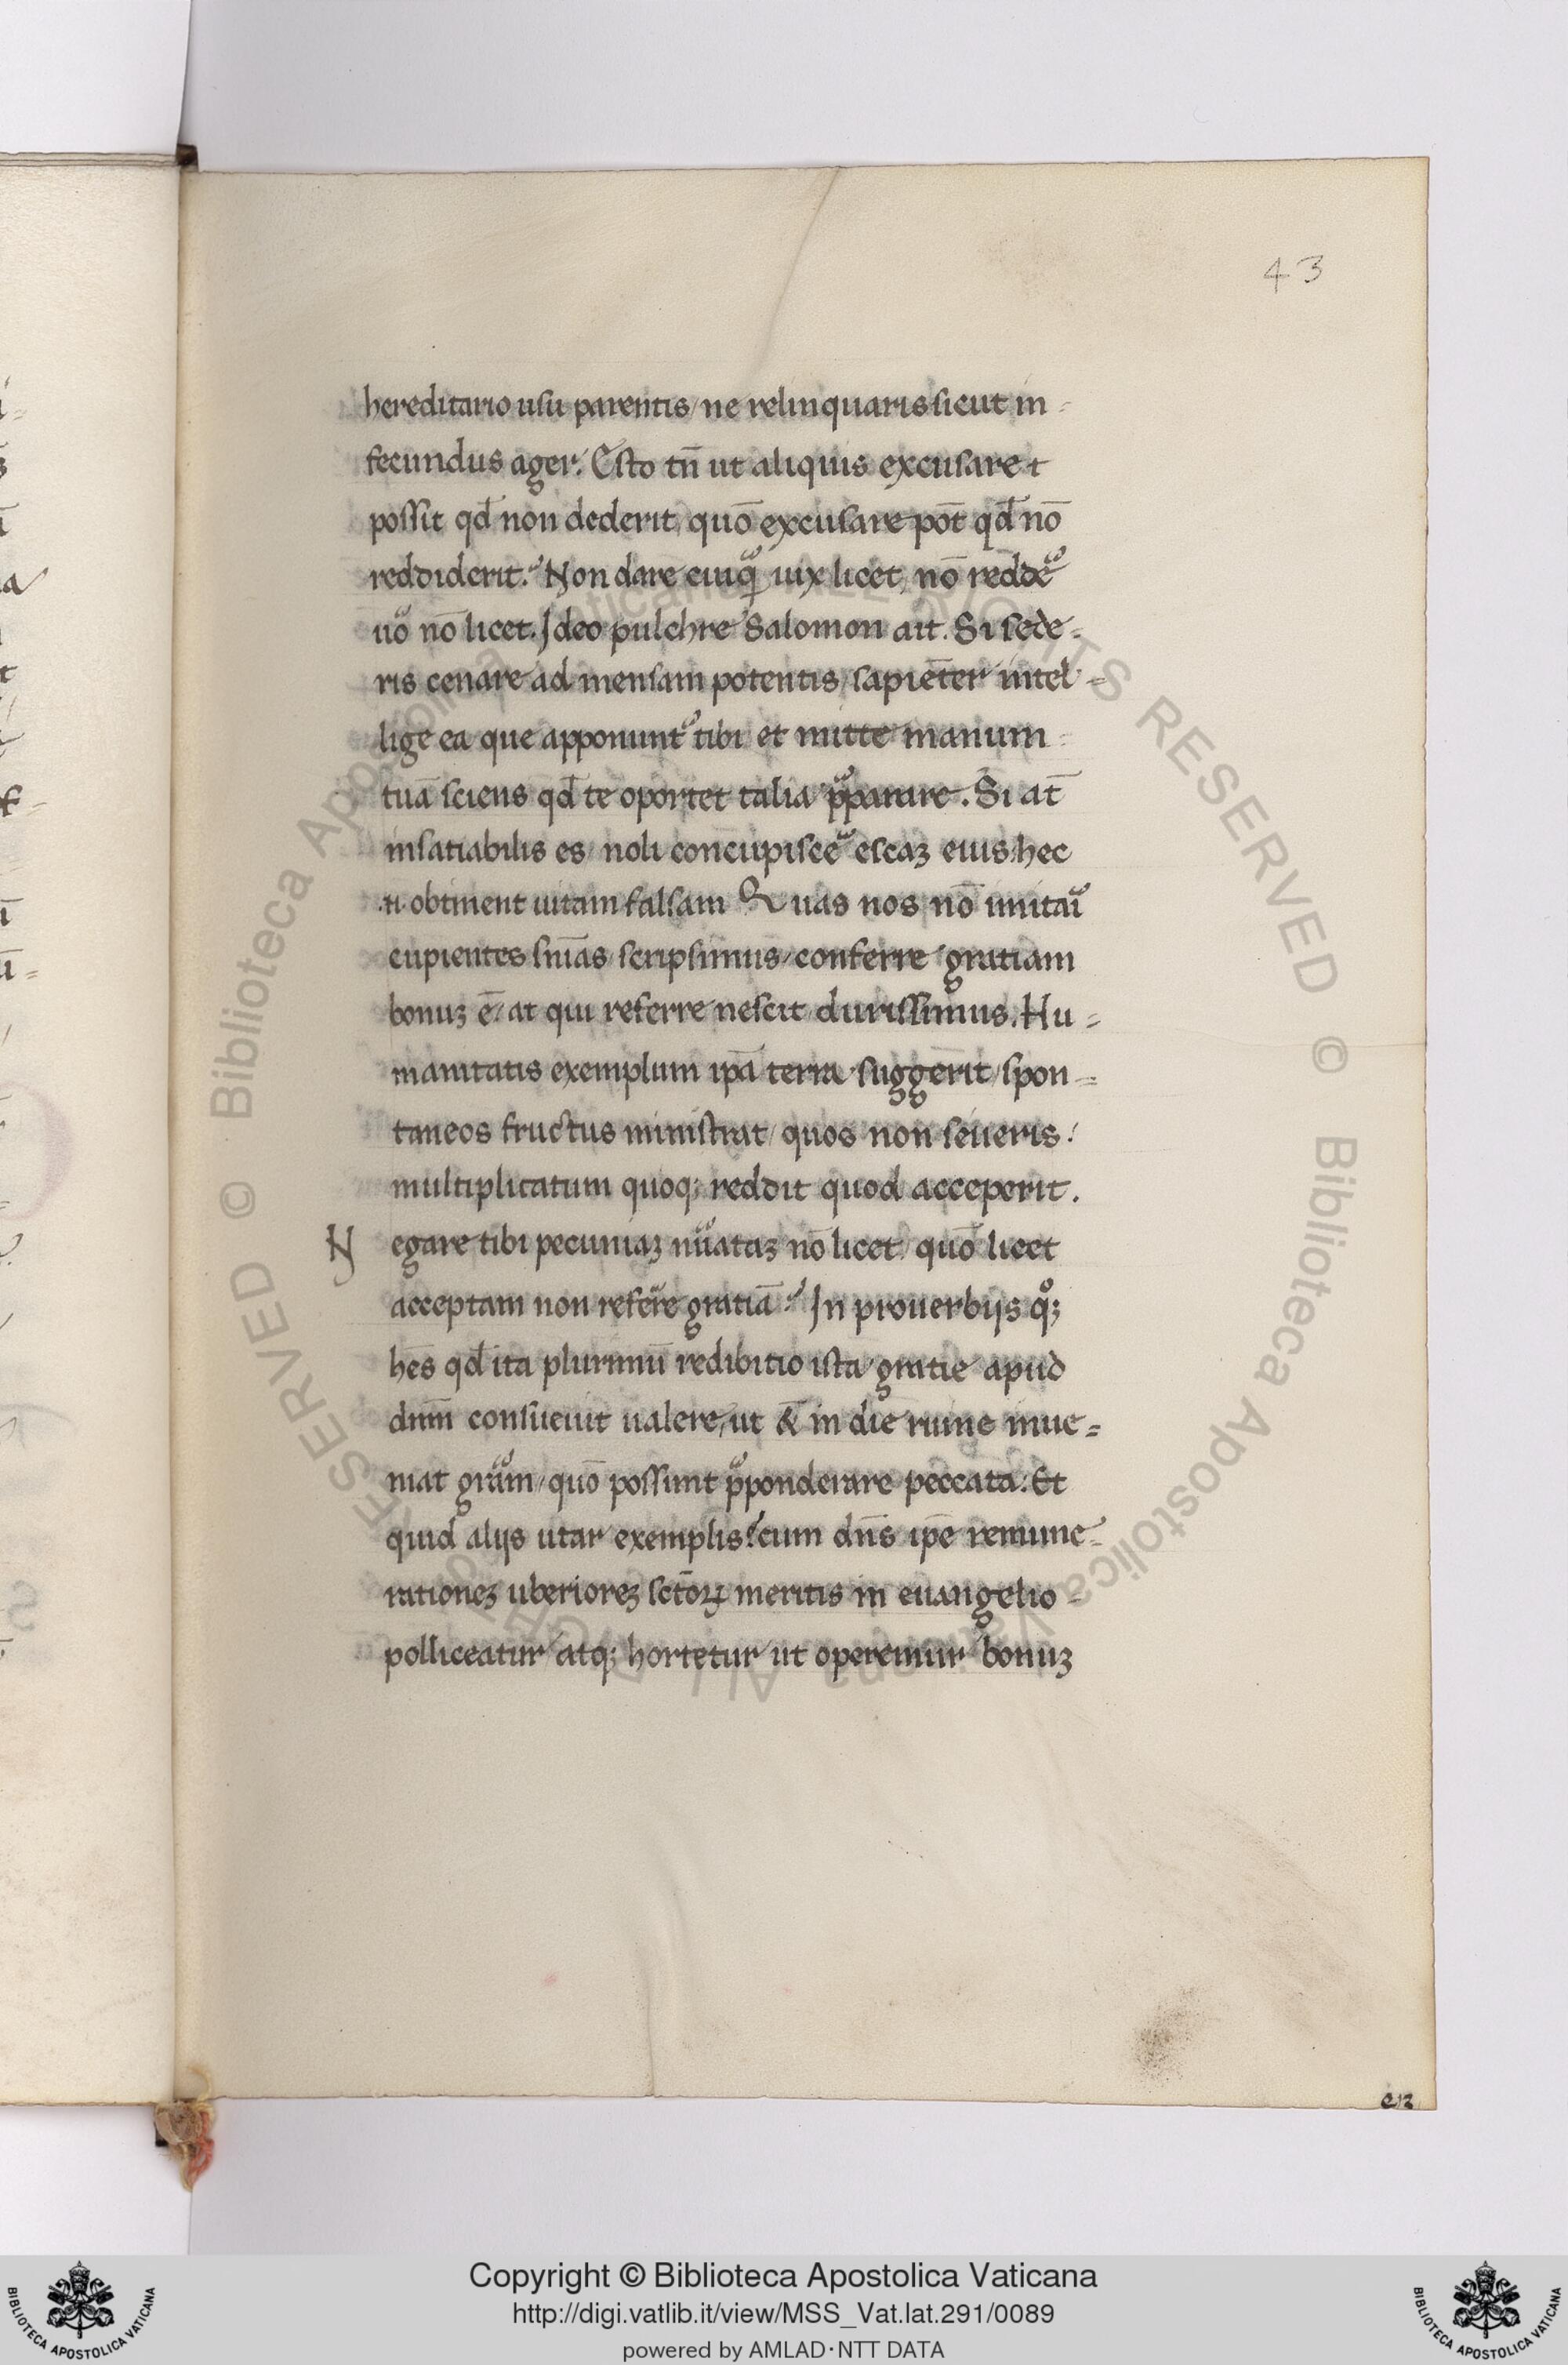 43
hereditario usu parentis / ne relinquaris sicut in=
fecundus ager. Esto tn̄ ut aliquis excusare t
possit qd̄ non dederit, quō excusare pōt qd̄ nō
reddiderit? Non dare cuiqᷓ uix licet, nō redde᷒
uo᷒ nō licet. Ideo pulchre Salomon ait. Si sede=
ris cenare ad mensam potentis / sapienter intel=
lige ea que apponunt᷒ tibi et mitte manum
tuā sciens qd̄ te oportet talia p̄parare. Si at̄
insatiabilis es / noli concupisce᷒ escaꝫ eius / hec
n. obtinent uitam falsam Quas nos nō imitaı᷒
cupientes sn̄ias scripsimus / conferre gratiam
bonuꝫ ē / at qui referre nescit durissimus. Hu=
manitatis exemplum ip̄a terra suggerit / spon=
taneos fructus ministrat / quos non seueris.
multiplicatum quoqꝫ reddit quod acceperit.
Negare tibi pecuniaꝫ nu᷒ataꝫ nō licet, quō licet
acceptam non refere gratiā? In prouerbijs qͦꝫ
hēs qd̄ ita plurimū redibitio ista gratie apud
dnm̄ consueuit ualere, ut & in die ruine inue=
niat gra᷒m / quō possunt p̄ponderare peccata. Et
quid alijs utar exemplis? cum dn̄s ip̄e remune=
rationeꝫ uberioreꝫ sctōꝝ meritis in euangelio
polliceatur / atqꝫ hortetur ut operemur bonuꝫ
© Biblioteca Apostolica Vaticana ALL RIGHTS RESERVED © Biblioteca Apostolica Vaticana ALL RIGHTS RESERVED
Copyright © Biblioteca Apostolica Vaticana
http://digi.vatlib.it/view/MSS_Vat.lat.291/0089
powered by AMLAD·NTT DATA
BIBLIOTECA APOSTOLICA VATICANA
BIBLIOTECA APOSTOLICA VATICANA